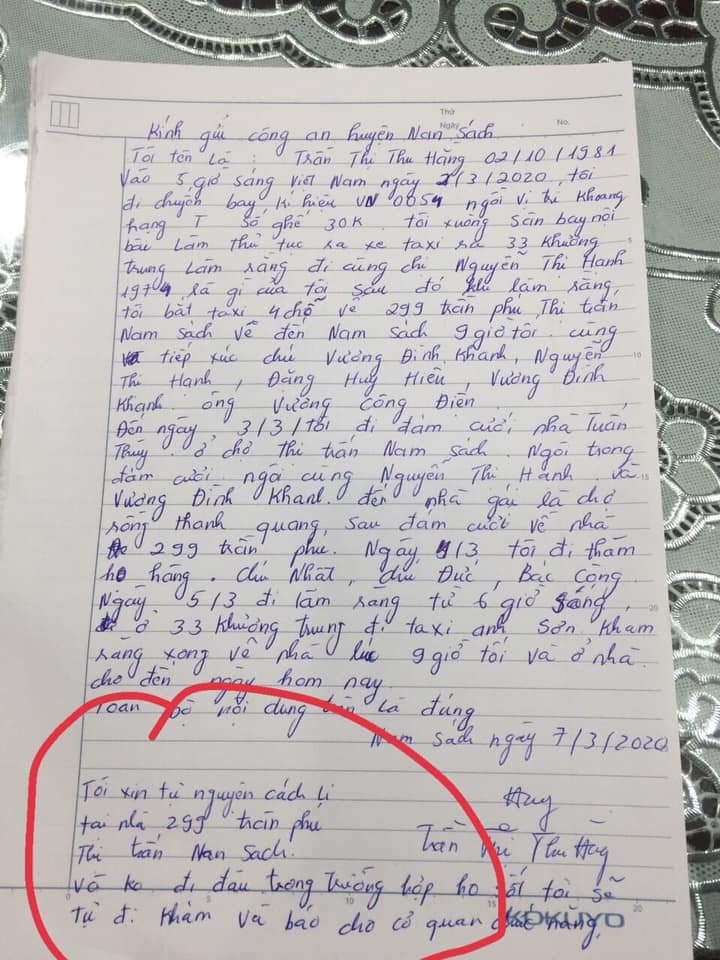 Thứ
Ngày
No.
Kính gửi công an huyện Nan Sách
Tôi tên là : Trần Thị Thu Hằng 02/10/1981
Vào 5 giờ sáng Việt Nam ngày 2/3/2020, tôi
đi chuyến bay kí hiệu VN 0054 ngồi vị trí khoang
hạng T số ghế 30K. tôi xuống sân bay nội
bài Làm thủ tục ra xe taxi ra 33 Khương
trung Làm răng đi cùng chị Nguyễn Thị Hạnh
1974 là gì của tôi sau đó khi làm răng,
tôi bắt taxi 4 chỗ về 299 trần phú, Thị trấn
Nam sách về đến Nam sách 9 giờ tối cùng
tiếp xúc chú Vương Đình Khanh, Nguyễn
Thị Hạnh, Đặng Huy Hiếu, Vương Đình
Khanh. ông Vương Công Điền
Đến ngày 3/3/tôi đi đám cưới nhà Tuấn
Thúy. ở chợ Thị trấn Nam sách. Ngồi trong
đám cưới ngồi cùng Nguyễn Thị Hạnh và
Vương Đình Khanh. đến nhà gái là chợ
rồng thanh quang, sau đám cưới về nhà
299 trần phú. Ngày 4/3 tôi đi thăm
họ hàng. chú Nhất, chú Đức, Bác Cộng
Ngày 5/3 đi làm răng từ 6 giờ sáng,
ở 33 Khương trung đi taxi anh Sơn. Khám
răng xong về nhà lúc 9 giờ tối và ở nhà.
cho đến ngày hom nay.
Toàn bộ nội dung trên là đúng
Nam Sách ngày 7/3/2020
Tôi xin tự nguyện cách li
tại nhà 299 trần phú
Thị trấn Nan Sách.
Hằng
Trần Thị Thu Hằng
và ko đi đâu trong trường hợp ho sốt tôi sẽ
tự đi khám và báo cho cơ quan chức năng.
5
10
15
20
0
5
10
15
20
KOKUYO